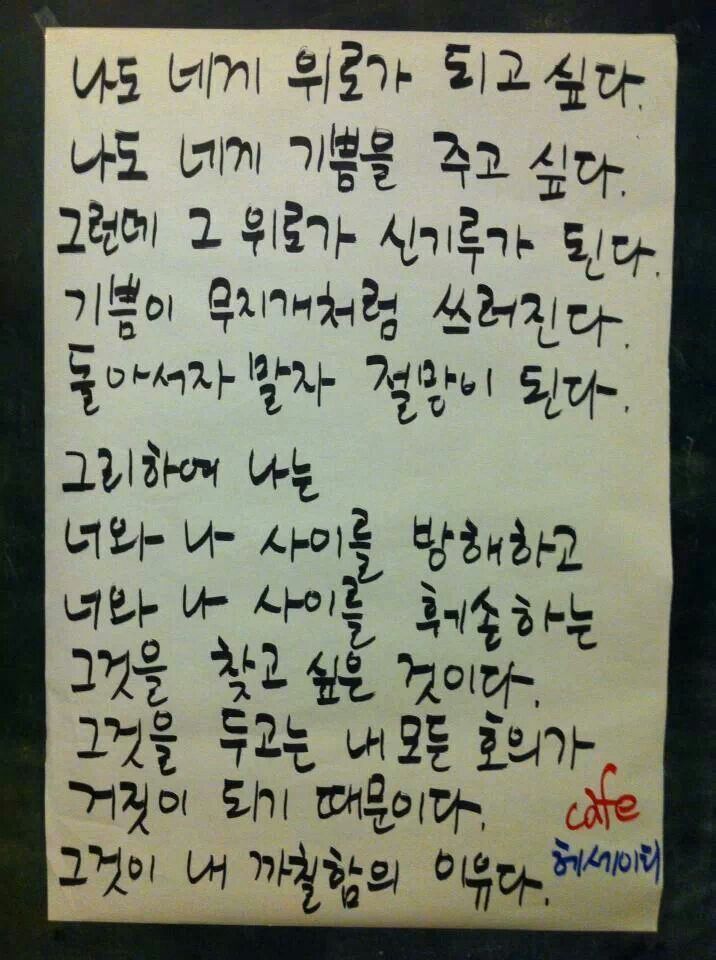 나도 네게 위로가 되고 싶다.
나도 네게 기쁨을 주고 싶다.
그런데 그 위로가 신기루가 된다.
기쁨이 무지개처럼 쓰러진다.
돌아서자 말자 절망이 된다.
그리하여 나는
너와 나 사이를 방해하고
너와 나 사이를 훼손하는
그것을 찾고 싶은 것이다.
그것을 두고는 내 모든 호의가
거짓이 되기 때문이다.
그것이 내 까칠함의 이유다.
cafe
헤세이티